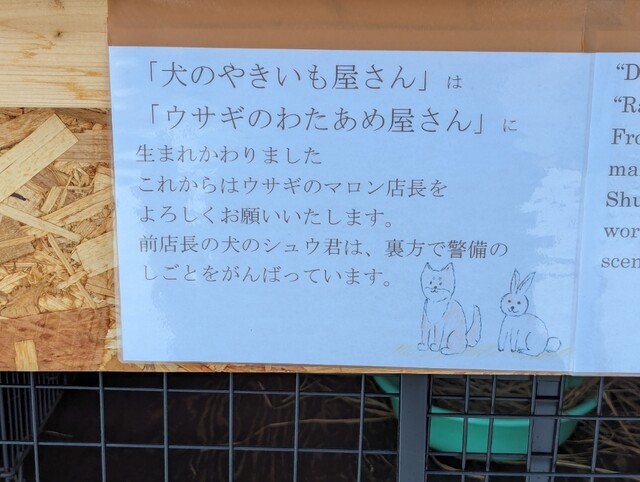 「犬のやきいも屋さん」は
「ウサギのわたあめ屋さん」に
生まれかわりました
これからはウサギのマロン店長を
よろしくお願いいたします。
前店長の犬のシュウ君は、裏方で警備の
しごとをがんばっています。
“D
“Ra
Fro
ma
Shu
wor
scen